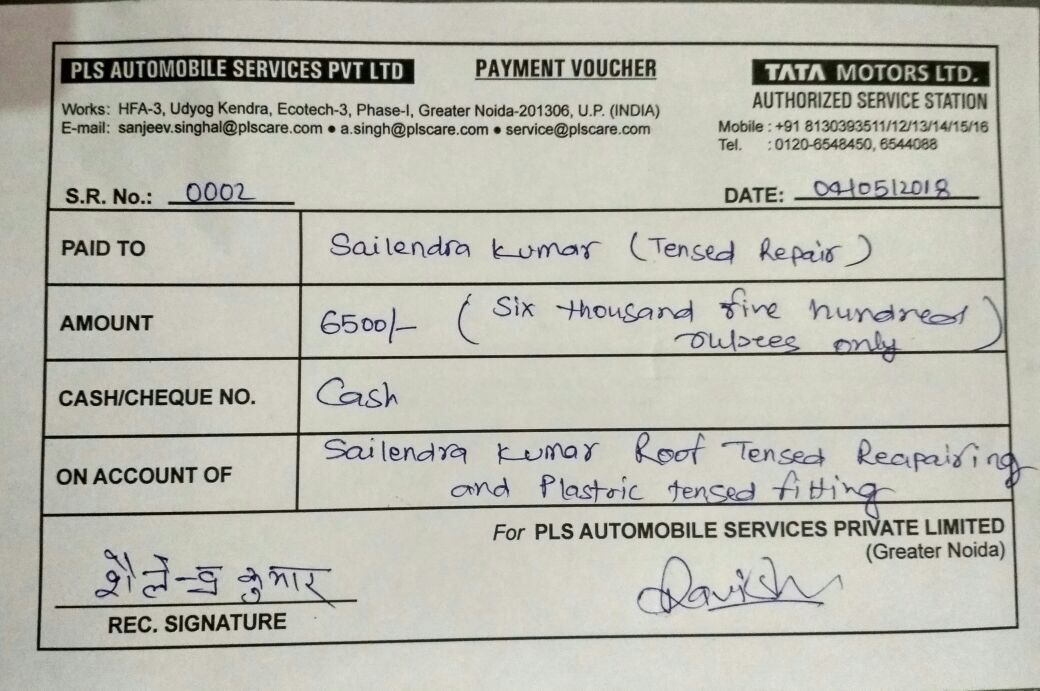 PLS AUTOMOBILE SERVICES PVT LTD
PAYMENT VOUCHER
TATA MOTORS LTD.
AUTHORIZED SERVICE STATION
Works: HFA-3, Udyog Kendra, Ecotech-3, Phase-I, Greater Noida-201306, U.P. (INDIA)
E-mail: sanjeev.singhal@plscare.com • a.singh@plscare.com • service@plscare.com
Mobile : +91 8130393511/12/13/14/15/16
Tel. : 0120-6548450, 6544088
S.R. No.: 0002
DATE: 04/05/2018
PAID TO Sailendra Kumar (Tensed Repair)
AMOUNT 6500/- (Six thousand five hundred
rulpees only)
CASH/CHEQUE NO. Cash
ON ACCOUNT OF Sailendra Kumar Roof Tensed Reapairing
and Plastric tensed fitting
For PLS AUTOMOBILE SERVICES PRIVATE LIMITED
(Greater Noida)
शैलेन्द्र कुमार
Ravish
REC. SIGNATURE